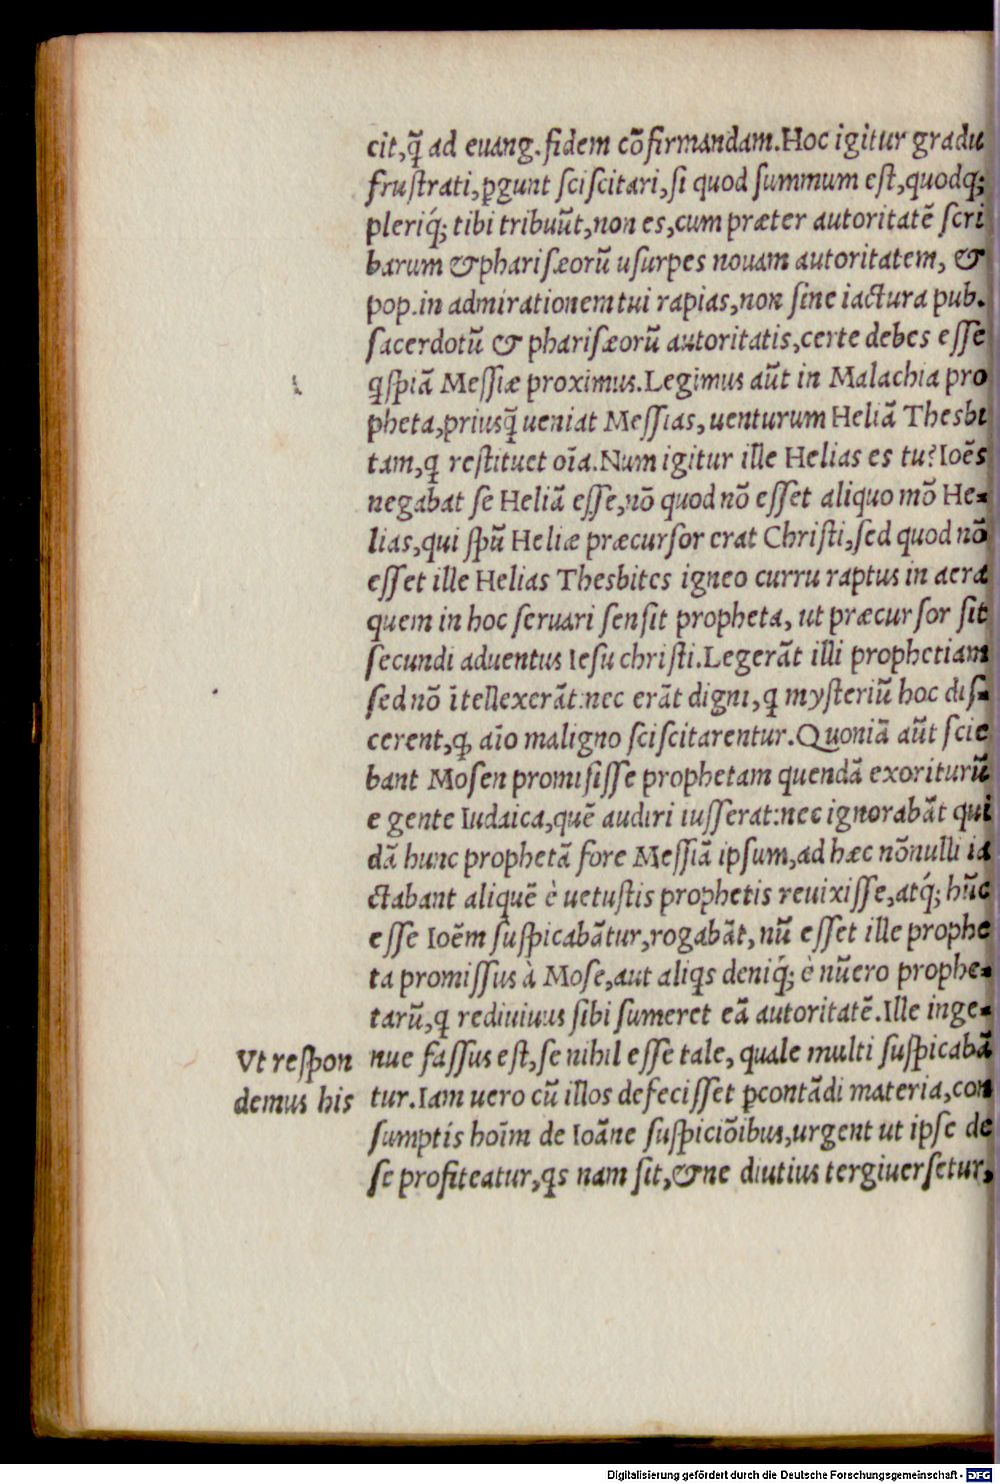 cit,q̃ ad euang.fidem cõfirmandam.Hoc igitur gradu
frustrati,ꝑgunt sciscitari,si quod summum est,quodq;
pleriq́; tibi tribuũt,non es,cum præter autoritatẽ scri
barum & pharisæorũ usurpes nouam autoritatem, &
pop.in admirationem tui rapias,non sine iactura pub.
sacerdotũ & pharisæorũ autoritatis,certe debes esse
qspiã Messiæ proximus.Legimus aũt in Malachia pro
pheta,priusq̃ ueniat Messias, uenturum Heliã Thesbi
tam,q restituet oĩa.Num igitur ille Helias es tu?Ioẽs
negabat se Heliã esse,nõ quod nõ esset aliquo mõ He-
lias,qui spũ Heliæ præcursor erat Christi,sed quod nõ
esset ille Helias Thesbites igneo curru raptus in aera
quem in hoc seruari sensit propheta, ut præcursor sit
secundi aduentus Iesu christi.Legerãt illi prophetiam
sed nõ ĩtellexerãt:nec erãt digni,q mysteriũ hoc dis-
cerent,q, aĩo maligno sciscitarentur.Quoniã aũt scie
bant Mosen promisisse prophetam quendã exoriturũ
e gente Iudaica,quẽ audiri iusserat:nec ignorabãt qui
dã hunc prophetã fore Messiã ipsum,ad hæc nõnulli ia
ctabant aliquẽ è uetustis prophetis reuixisse,atq́; hũc
esse Ioẽm suspicabãtur,rogabãt,nũ esset ille prophe
ta promissus à Mose,aut aliqs deniq́; è nũero prophe-
tarũ,q rediuiuus sibi sumeret eã autoritatẽ.Ille inge-
Vt respon
demus his
nue fassus est,se nihil esse tale, quale multi suspicabã
tur.Iam uero cũ illos defecisset ꝑcontãdi materia,con
sumptis hoĩm de Ioãne suspiciõibus,urgent ut ipse de
se profiteatur,qs nam sit,& ne diutius tergiuersetur,
Digitalisierung gefördert durch die Deutsche Forschungsgemeinschaft - DFG